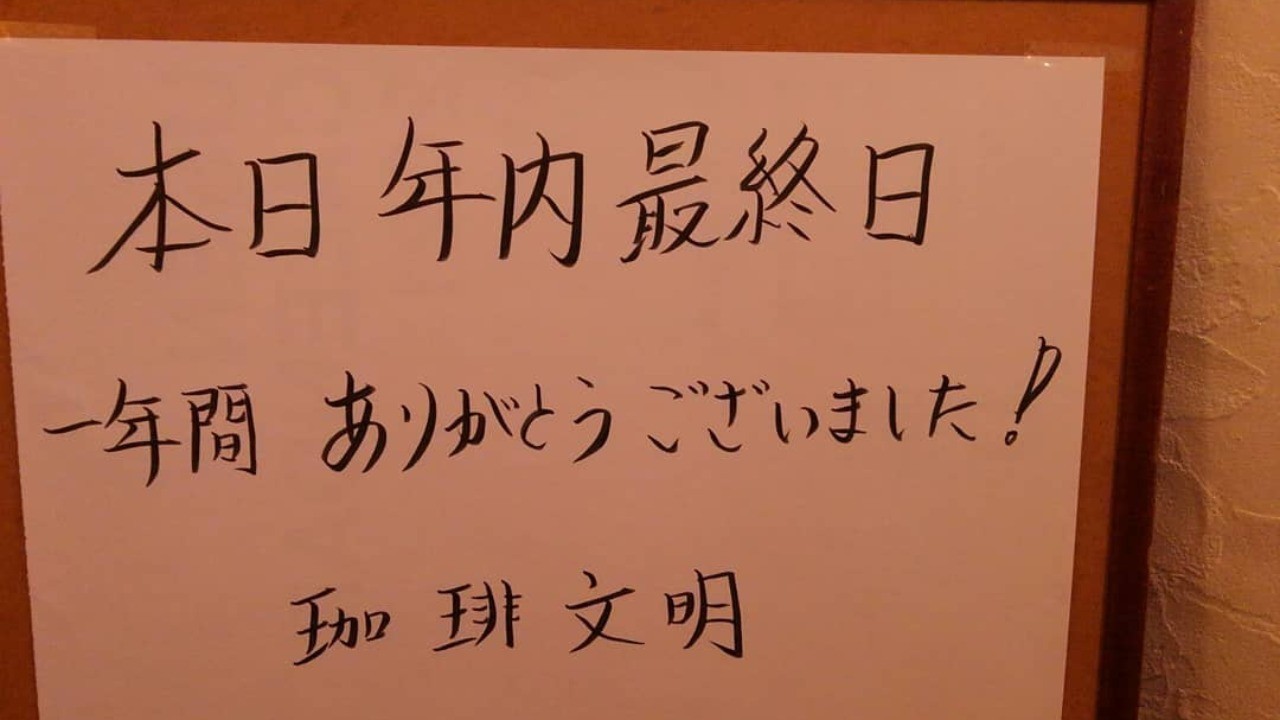 本日 年内 最終日
一年間 ありがとうございました!
珈琲文明